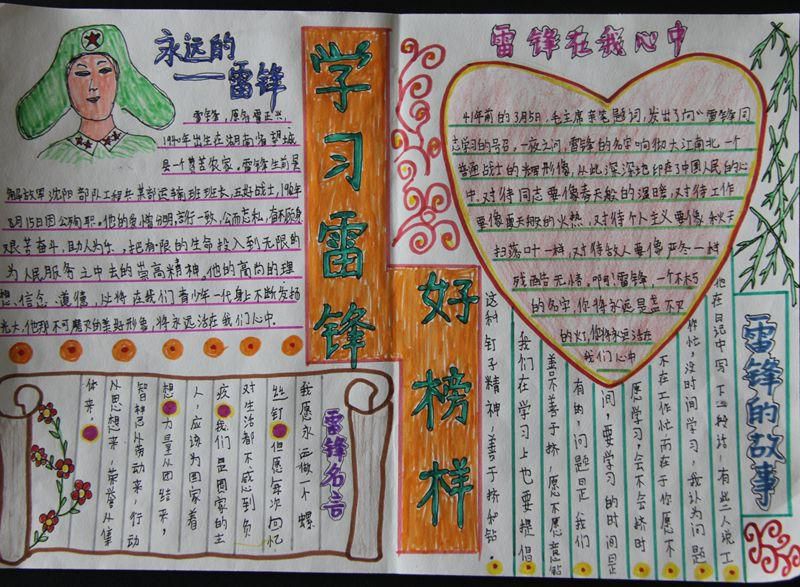 永远的
——雷锋
雷锋，原名雷正兴
1940年出生在湖南省望城
县一个贫苦农家，雷锋生前是
解放军沈阳部队工程兵某部运输班班长，五好战士，1962年
8月15日因公殉职，他的爱憎分明，言行一致，公而忘私，奋不顾身
艰苦奋斗，助人为乐，把有限的生命投入到无限的
为人民服务之中去的崇高精神，他的高尚的理
想、信念、道德，必将在我们青少年一代身上不断发扬
光大，他那不可磨灭的美好形象，将永远活在我们心中。
学习雷锋
好榜样
雷锋在我心中
41年前的3月5日，毛主席亲笔题词，发出了向“雷锋同
志学习的号召，一夜之间，雷锋的名字响彻大江南北，一个
普通战士的辉煌形像，从此深深地印在了中国人民的心
中，对待同志要像春天般的温暖，对待工作
要像夏天般的火热，对待个人主义要像秋天
扫落叶一样，对待敌人要像严冬一样
残酷无情，啊！雷锋，一个不朽
的名字，你将永远是盏不灭
的灯，你将永远活在
我们心中
雷锋名言
我愿永远做一个螺
丝钉，但愿每次回忆
对生活都不感到负
疚，我们是国家的主
人，应该为国家着
想，力量从团结来，
智慧从劳动来，行动
从思想来，荣誉从集
体来，
雷锋的故事
他在日记中写下一种话，有些人说工
作忙，没时间学习，我认为问题
不在工作忙而在于你愿不
愿学习，会不会挤时
间，要学习的时间是
有的，问题是我们
善不善于挤，愿不愿意钻
我们在学习上也要提倡
这种钉子精神，善于挤和钻。